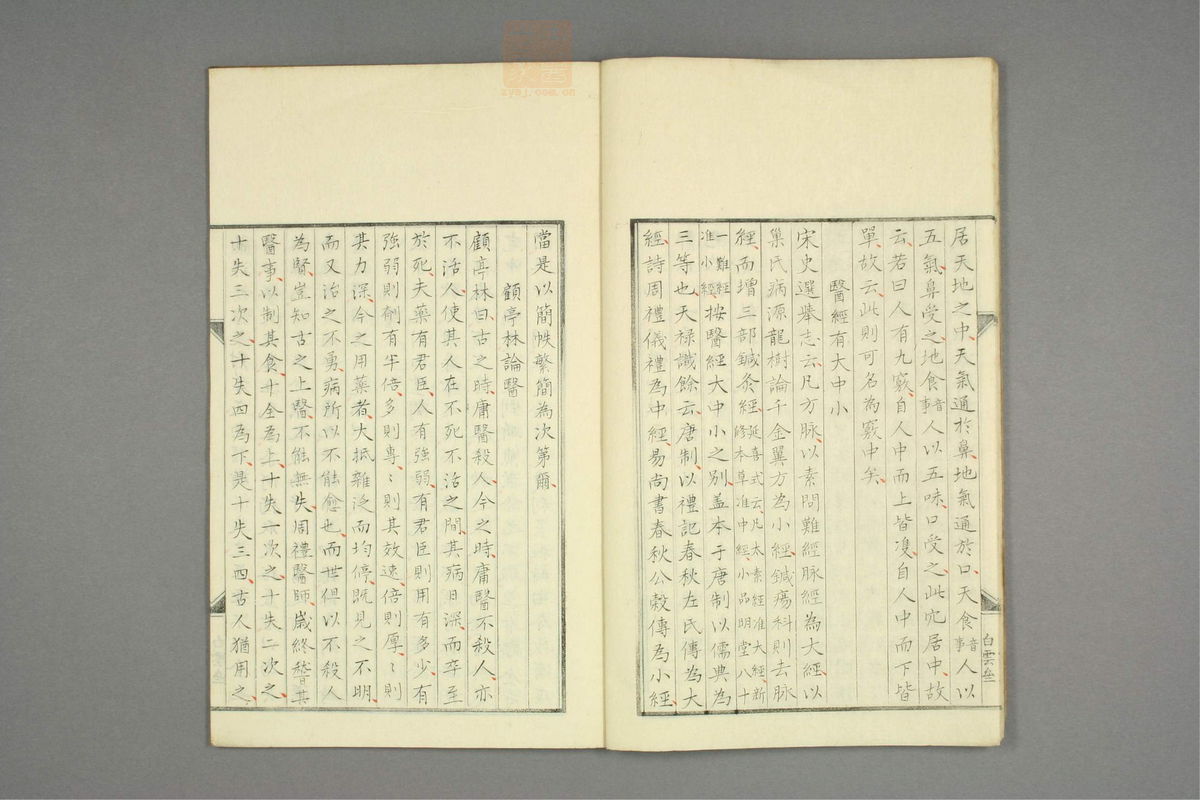 居天地之中、天氣通於鼻、地氣通於口、天食音事人以
五氣、鼻受之、地食音事人以五味、口受之、此穴居中、故
云、若曰人有九竅、自人中而上皆雙、自人中而下皆
單、故云、此則可名為竅中矣、
醫經有大中小
宋史選舉志云、凡方脉、以素問難經脉經為大經、以
巢氏病源龍樹論千金翼方為小經、鍼瘍科則去脉
經、而增三部鍼灸經、延喜式云、凡太素經准大經、新修本草准中經、小品明堂八十
一難經准小經、按醫經大中小之別、蓋本于唐制以儒典為
三等也、天禄識餘云、唐制、以禮記春秋左氏傳為大
經、詩周禮儀禮為中經、易尚書春秋公穀傳為小經、
當是以簡帙繁簡為次第爾、
顧亭林論醫
顧亭林曰、古之時、庸醫殺人、今之時、庸醫不殺人、亦
不活人、使其人在不死不活之間、其病日深、而卒至
於死、夫藥有君臣、人有強弱、有君臣則用有多少、有
強弱則劑有半倍、多則專、〻則其效速、倍則厚、〻則
其力深、今之用藥者、大抵雜泛而均停、既見之不明、
而又治之不勇、病所以不能愈也、而世但以不殺人
為賢、豈知古之上醫、不能無失、周禮醫師、歲終稽其
醫事、以制其食、十全為上、十失一次之、十失二次之、
十失三次之、十失四為下、是十失三四、古人猶用之、
白雲叁